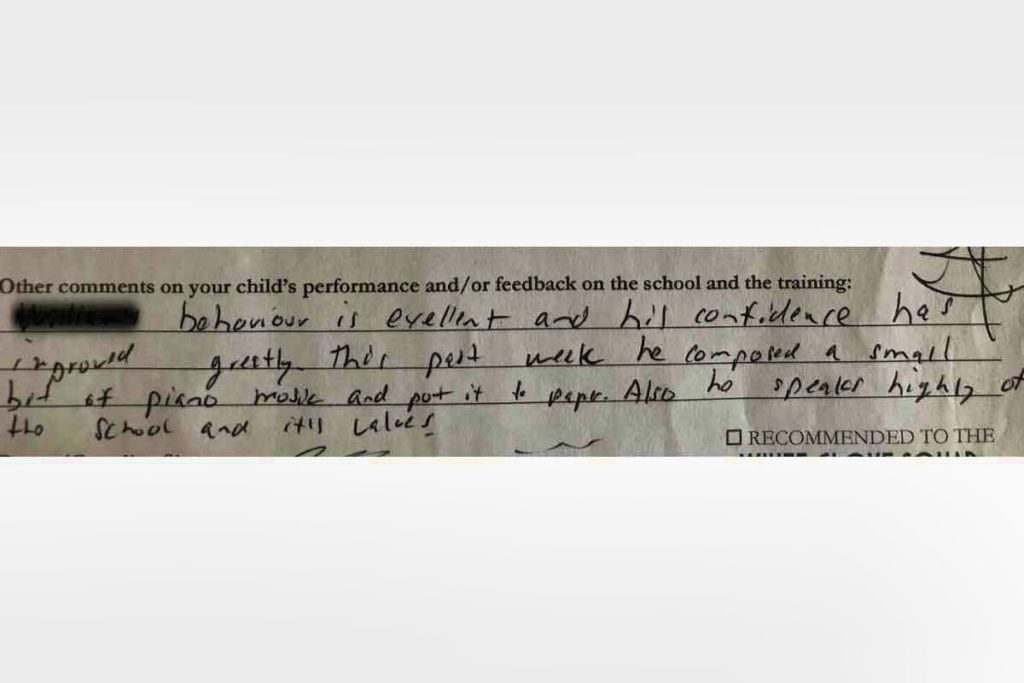 Other comments on your child's performance and/or feedback on the school and the training:
behaviour is exellent and his confidence has
improved greatly. This past week he composed a small
bit of piano music and put it to paper. Also he speaks highly of
the school and it's values.
☐ RECOMMENDED TO THE